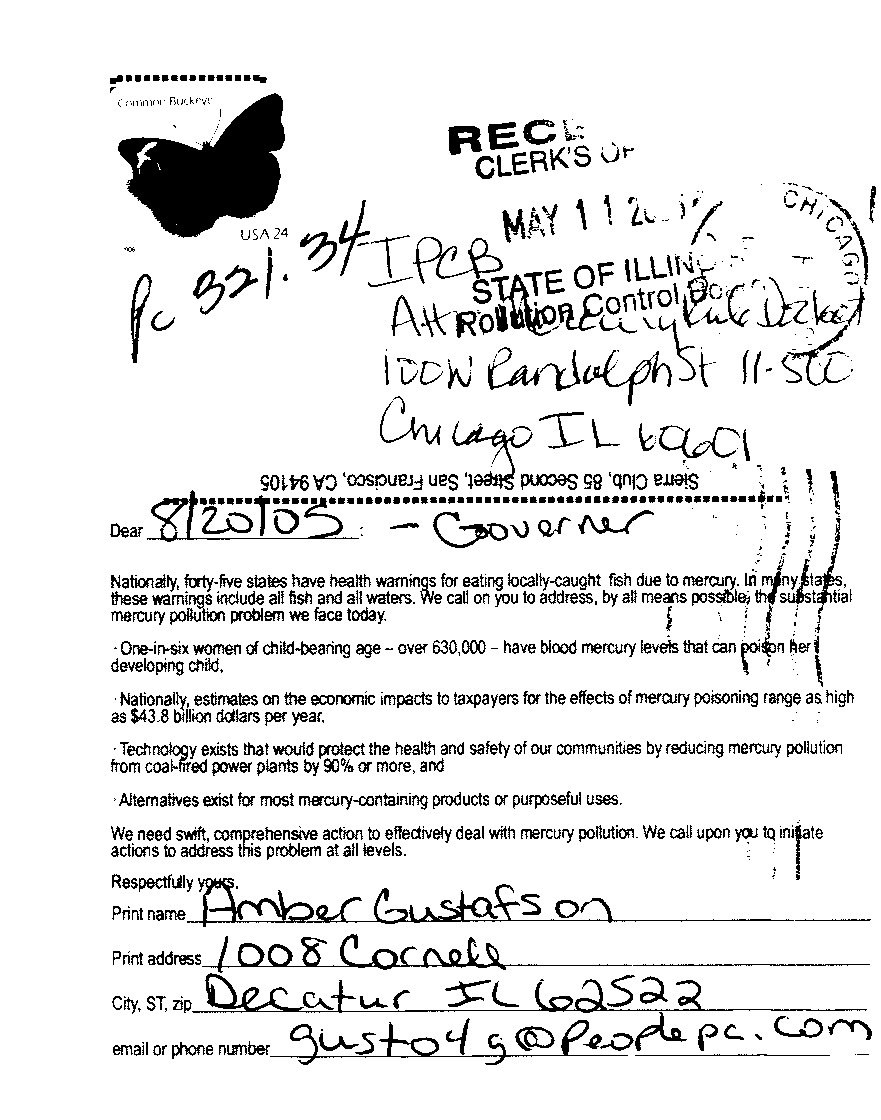 Common Buckeye
USA 24
RECE
CLERK'S OF
MAY 11
CHICAGO
STATE OF ILLIN
Pollution Control Bo
Pc 321.34
IPCB
Att Mercury Rule Docket
100 W Randolph St 11-500
Chicago IL 60601
Sierra Club, 85 Second Street, San Francisco, CA 94105
Dear 8/20/05 - Governer
Nationally, forty-five states have health warnings for eating locally-caught fish due to mercury. In many states,
these warnings include all fish and all waters. We call on you to address, by all means possible, the substantial
mercury pollution problem we face today.
· One-in-six women of child-bearing age – over 630,000 – have blood mercury levels that can poison her
developing child,
· Nationally, estimates on the economic impacts to taxpayers for the effects of mercury poisoning range as high
as $43.8 billion dollars per year,
· Technology exists that would protect the health and safety of our communities by reducing mercury pollution
from coal-fired power plants by 90% or more, and
· Alternatives exist for most mercury-containing products or purposeful uses.
We need swift, comprehensive action to effectively deal with mercury pollution. We call upon you to initiate
actions to address this problem at all levels.
Respectfully yours,
Print name Amber Gustafson
Print address 1008 Cornell
City, ST, zip Decatur IL 62522
email or phone number gusto4g@Peoplepc.com